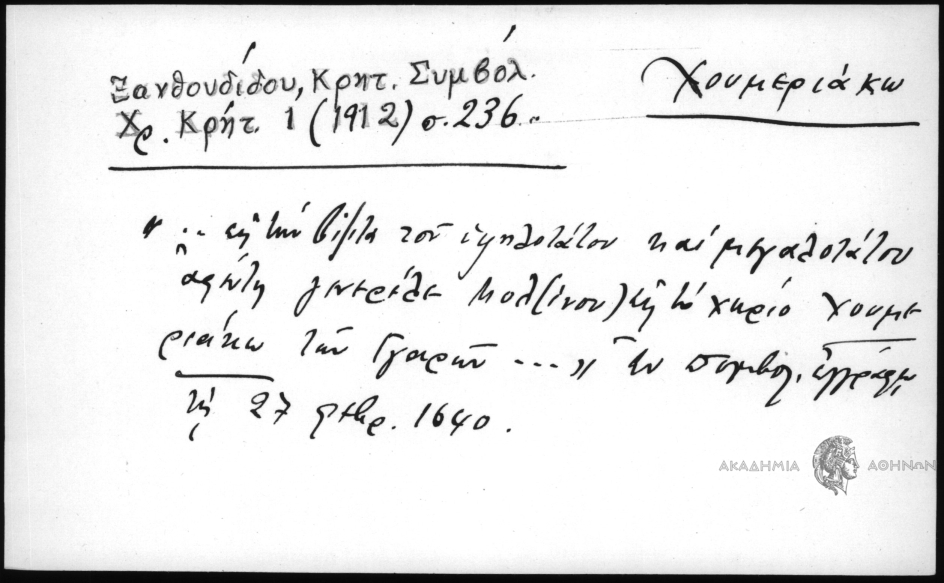 Ξανθουδίδου, Κρητ. Συμβόλ.
Χρ. Κρήτ. 1 (1912) σ. 236.
Χουμεριάκω
".. εἰς τὴν βίζιτα τοῦ ὑψηλοτάτου καὶ μεγαλοτάτου
ἀφέντη γενεράλε Μολ(ίνου) εἰς τὸ χωρίο Χουμε
ριάκω τῶν ... » ἐν συμβολ. ἐγγράφῳ
τῆς 27 φεβρ. 1640.
ΑΚΑΔΗΜΙΑ ΑΘΗΝΩΝ